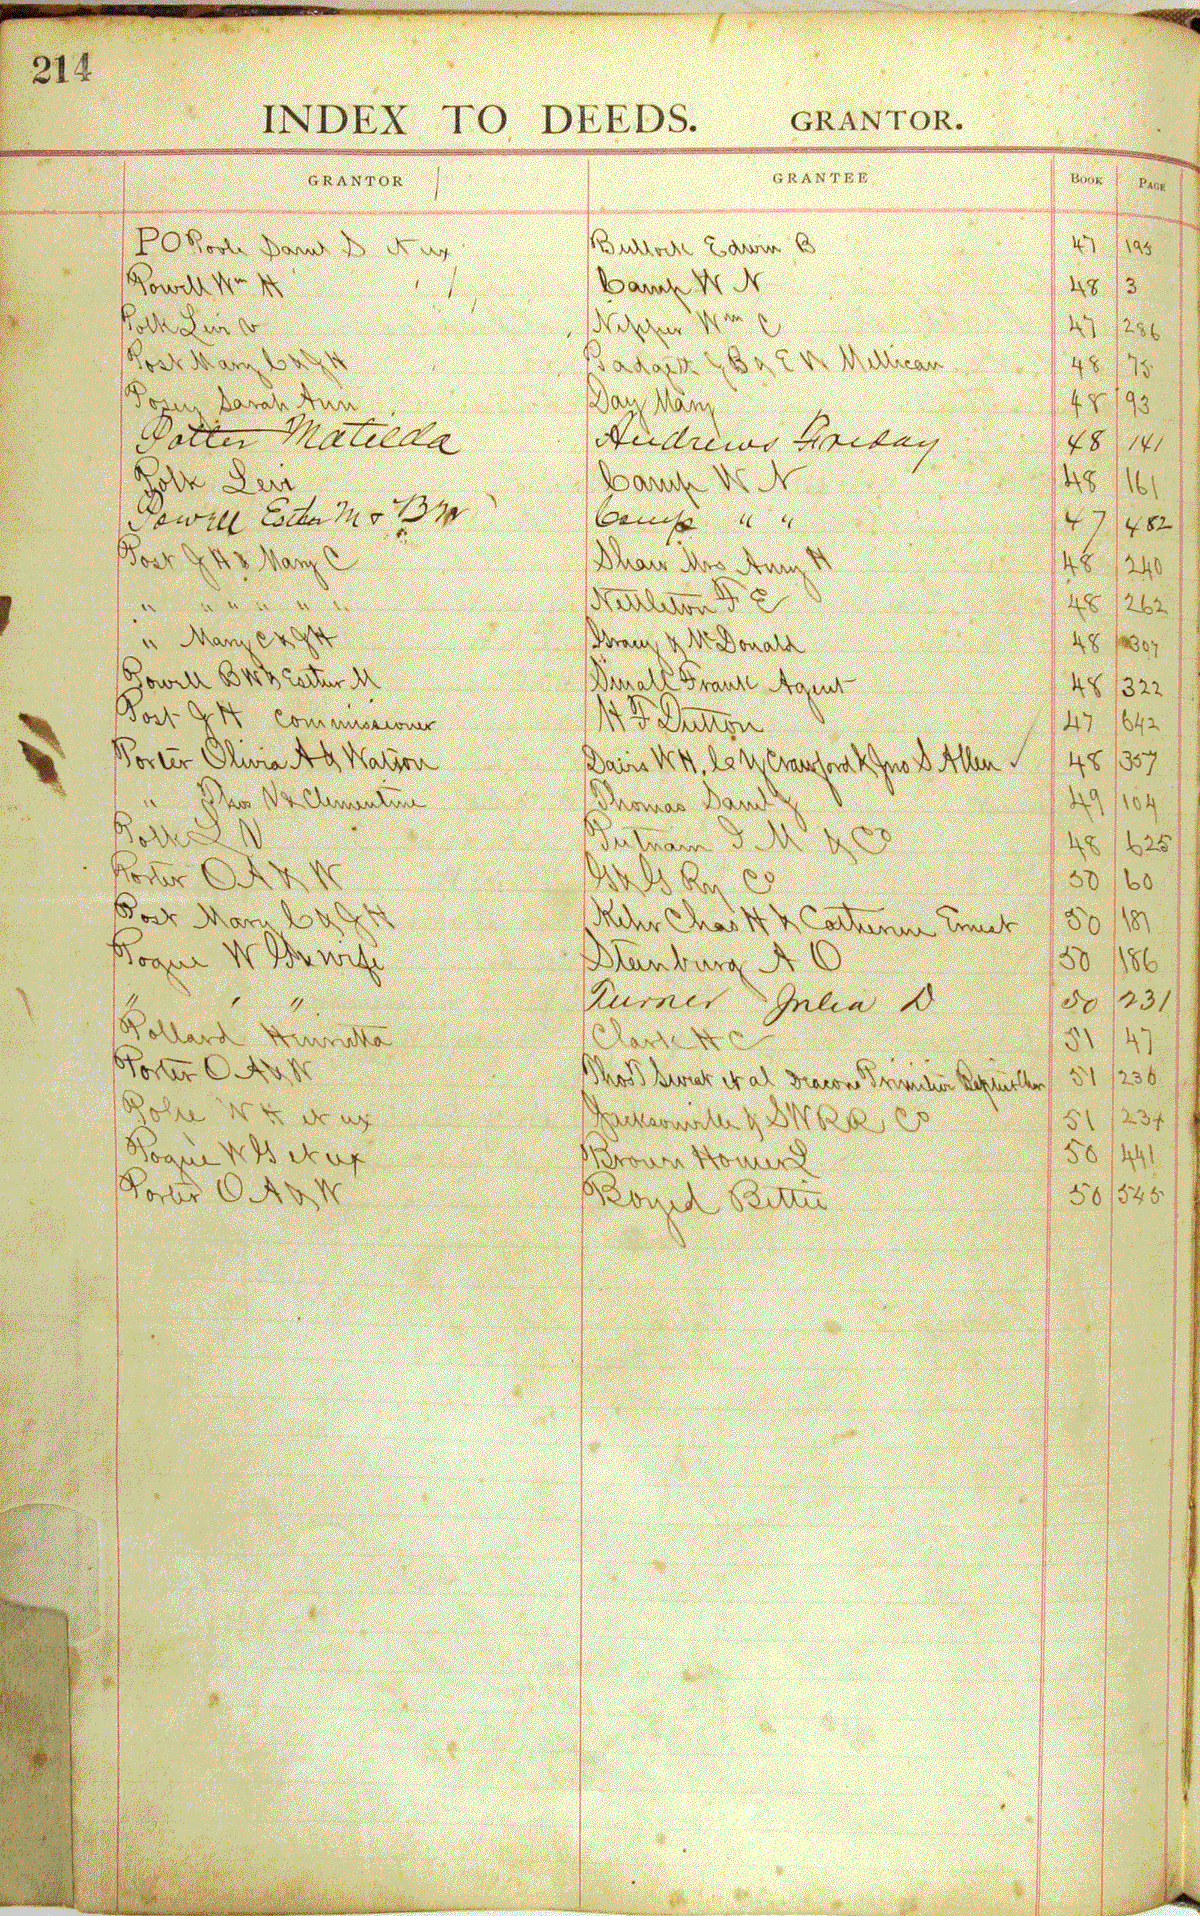 214
INDEX TO DEEDS. GRANTOR.
GRANTOR GRANTEE BOOK PAGE
PO Poole Saml S et ux Bullock Edwin B 47 195
Powell Wm H Camp W N 48 3
Polk Levi V Nipper Wm C 47 286
Post Mary C & J H Padgett J B & E N Mellican 48 75
Posey Sarah Ann Day Mary 48 93
Potter Matilda Andrews Friday 48 141
Polk Levi Camp W N 48 161
Powell Esther M & B W Camp " " 47 482
Post J H & Mary C Shaw Mrs Amy H 48 240
" " " " " " Nettleton F E 48 262
" Mary C & J H Gracy & McDonald 48 307
Powell B W & Esther M Small Frank Agent 48 322
Post J H Commissioner H F Dutton 47 642
Porter Olivia A & Watson Davis W H, C Y Crawford & Jno S Allen ✓ 48 357
" Thos V & Clementine Thomas Saml J 49 104
Polk L V Putnam I M & Co 48 625
Porter O A & W G & G Ry Co 50 60
Post Mary C & J H Kehr Chas H & Catherine Ernest 50 181
Pogue W G & wife Stenburg A O 50 186
" " " Turner Julia D 50 231
Pollard Henrietta Clark H C 51 47
Porter O A & W Thos T Sweat et al Deacons Primitive Baptist Chr 51 236
W H et ux Jacksonville & S W R R Co 51 234
Pogue W G et ux Brown Homer L 50 441
Porter O A & W Boyed Bettie 50 545